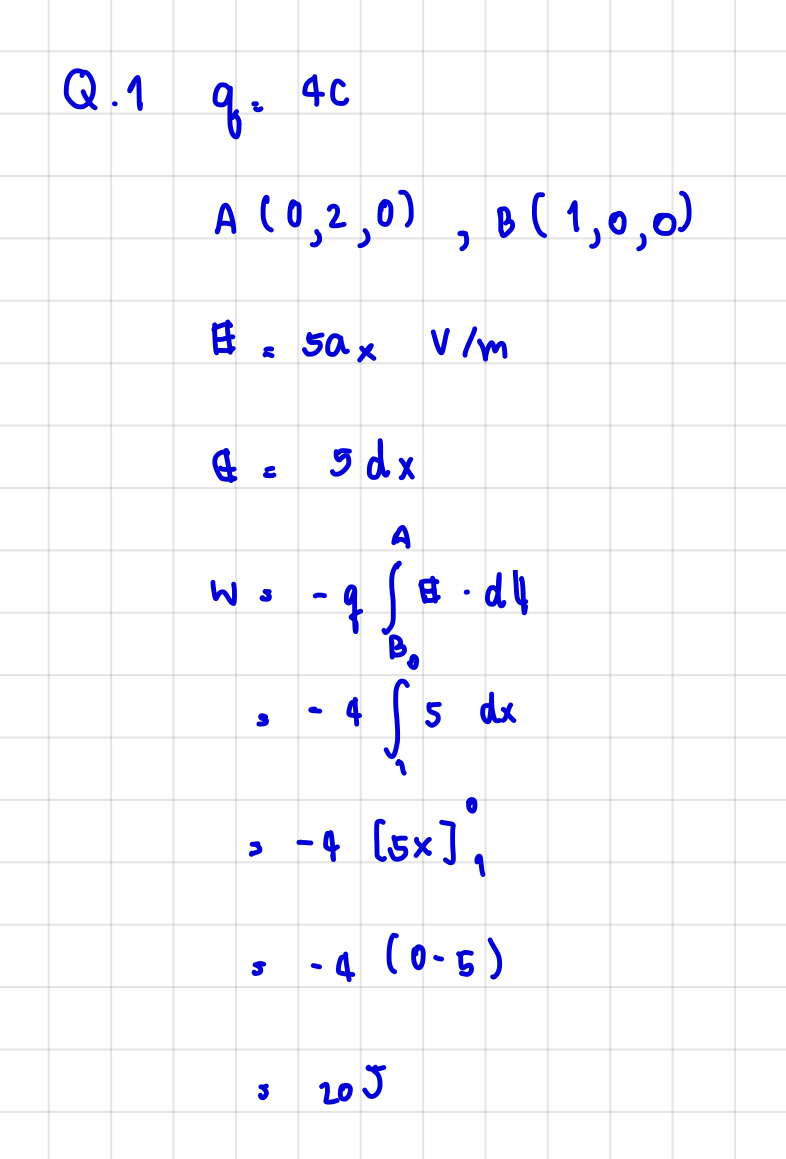 Q.1 q = 4C
A (0,2,0) , B (1,0,0)
E = 5ax V/m
= 5 dx
W = -q ∫_B^A E · dL
= -4 ∫_1^0 5 dx
= -4 [5x]_1^0
= -4 (0-5)
= 20J